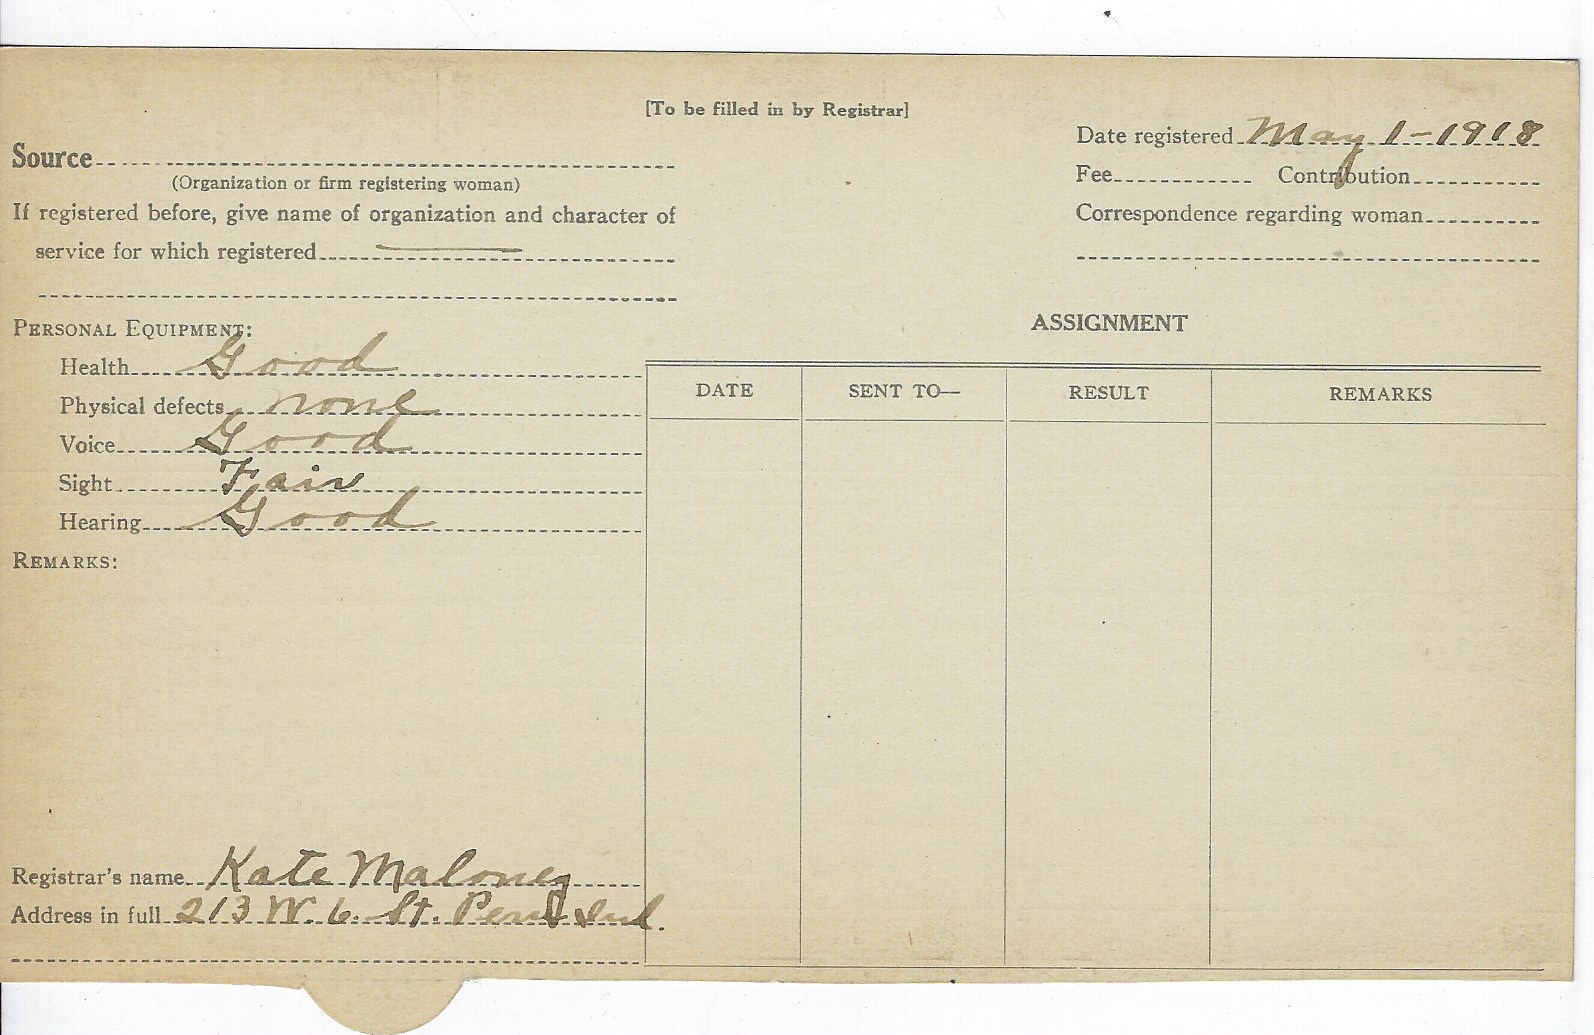 [To be filled in by Registrar]
Date registered May 1-1918
Source
(Organization or firm registering woman)
Fee Contribution
If registered before, give name of organization and character of
Correspondence regarding woman
service for which registered
PERSONAL EQUIPMENT:
ASSIGNMENT
Health Good
DATE SENT TO— RESULT REMARKS
Physical defects none
Voice Good
Sight Fair
Hearing Good
REMARKS:
Registrar's name Kate Maloney
Address in full 213 W. 6. St. Peru Ind.